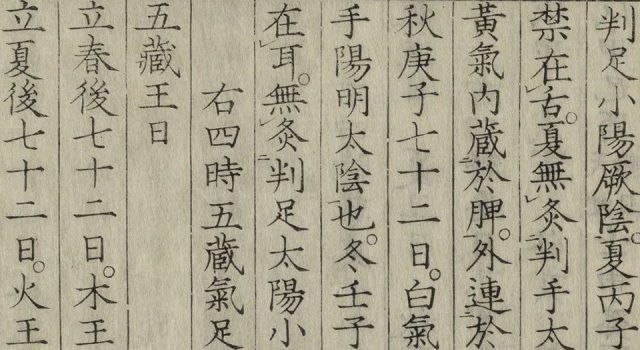 判足小陽厥陰。夏丙子
禁在舌。夏無灸判手太
黃氣內蔵於脾。外連於
秋庚子七十二日。白氣
手陽明太陰也。冬壬子
在耳。無灸判足太陽小
右四時五蔵氣足
五蔵王日
立春後七十二日。木王
立夏後七十二日。火王